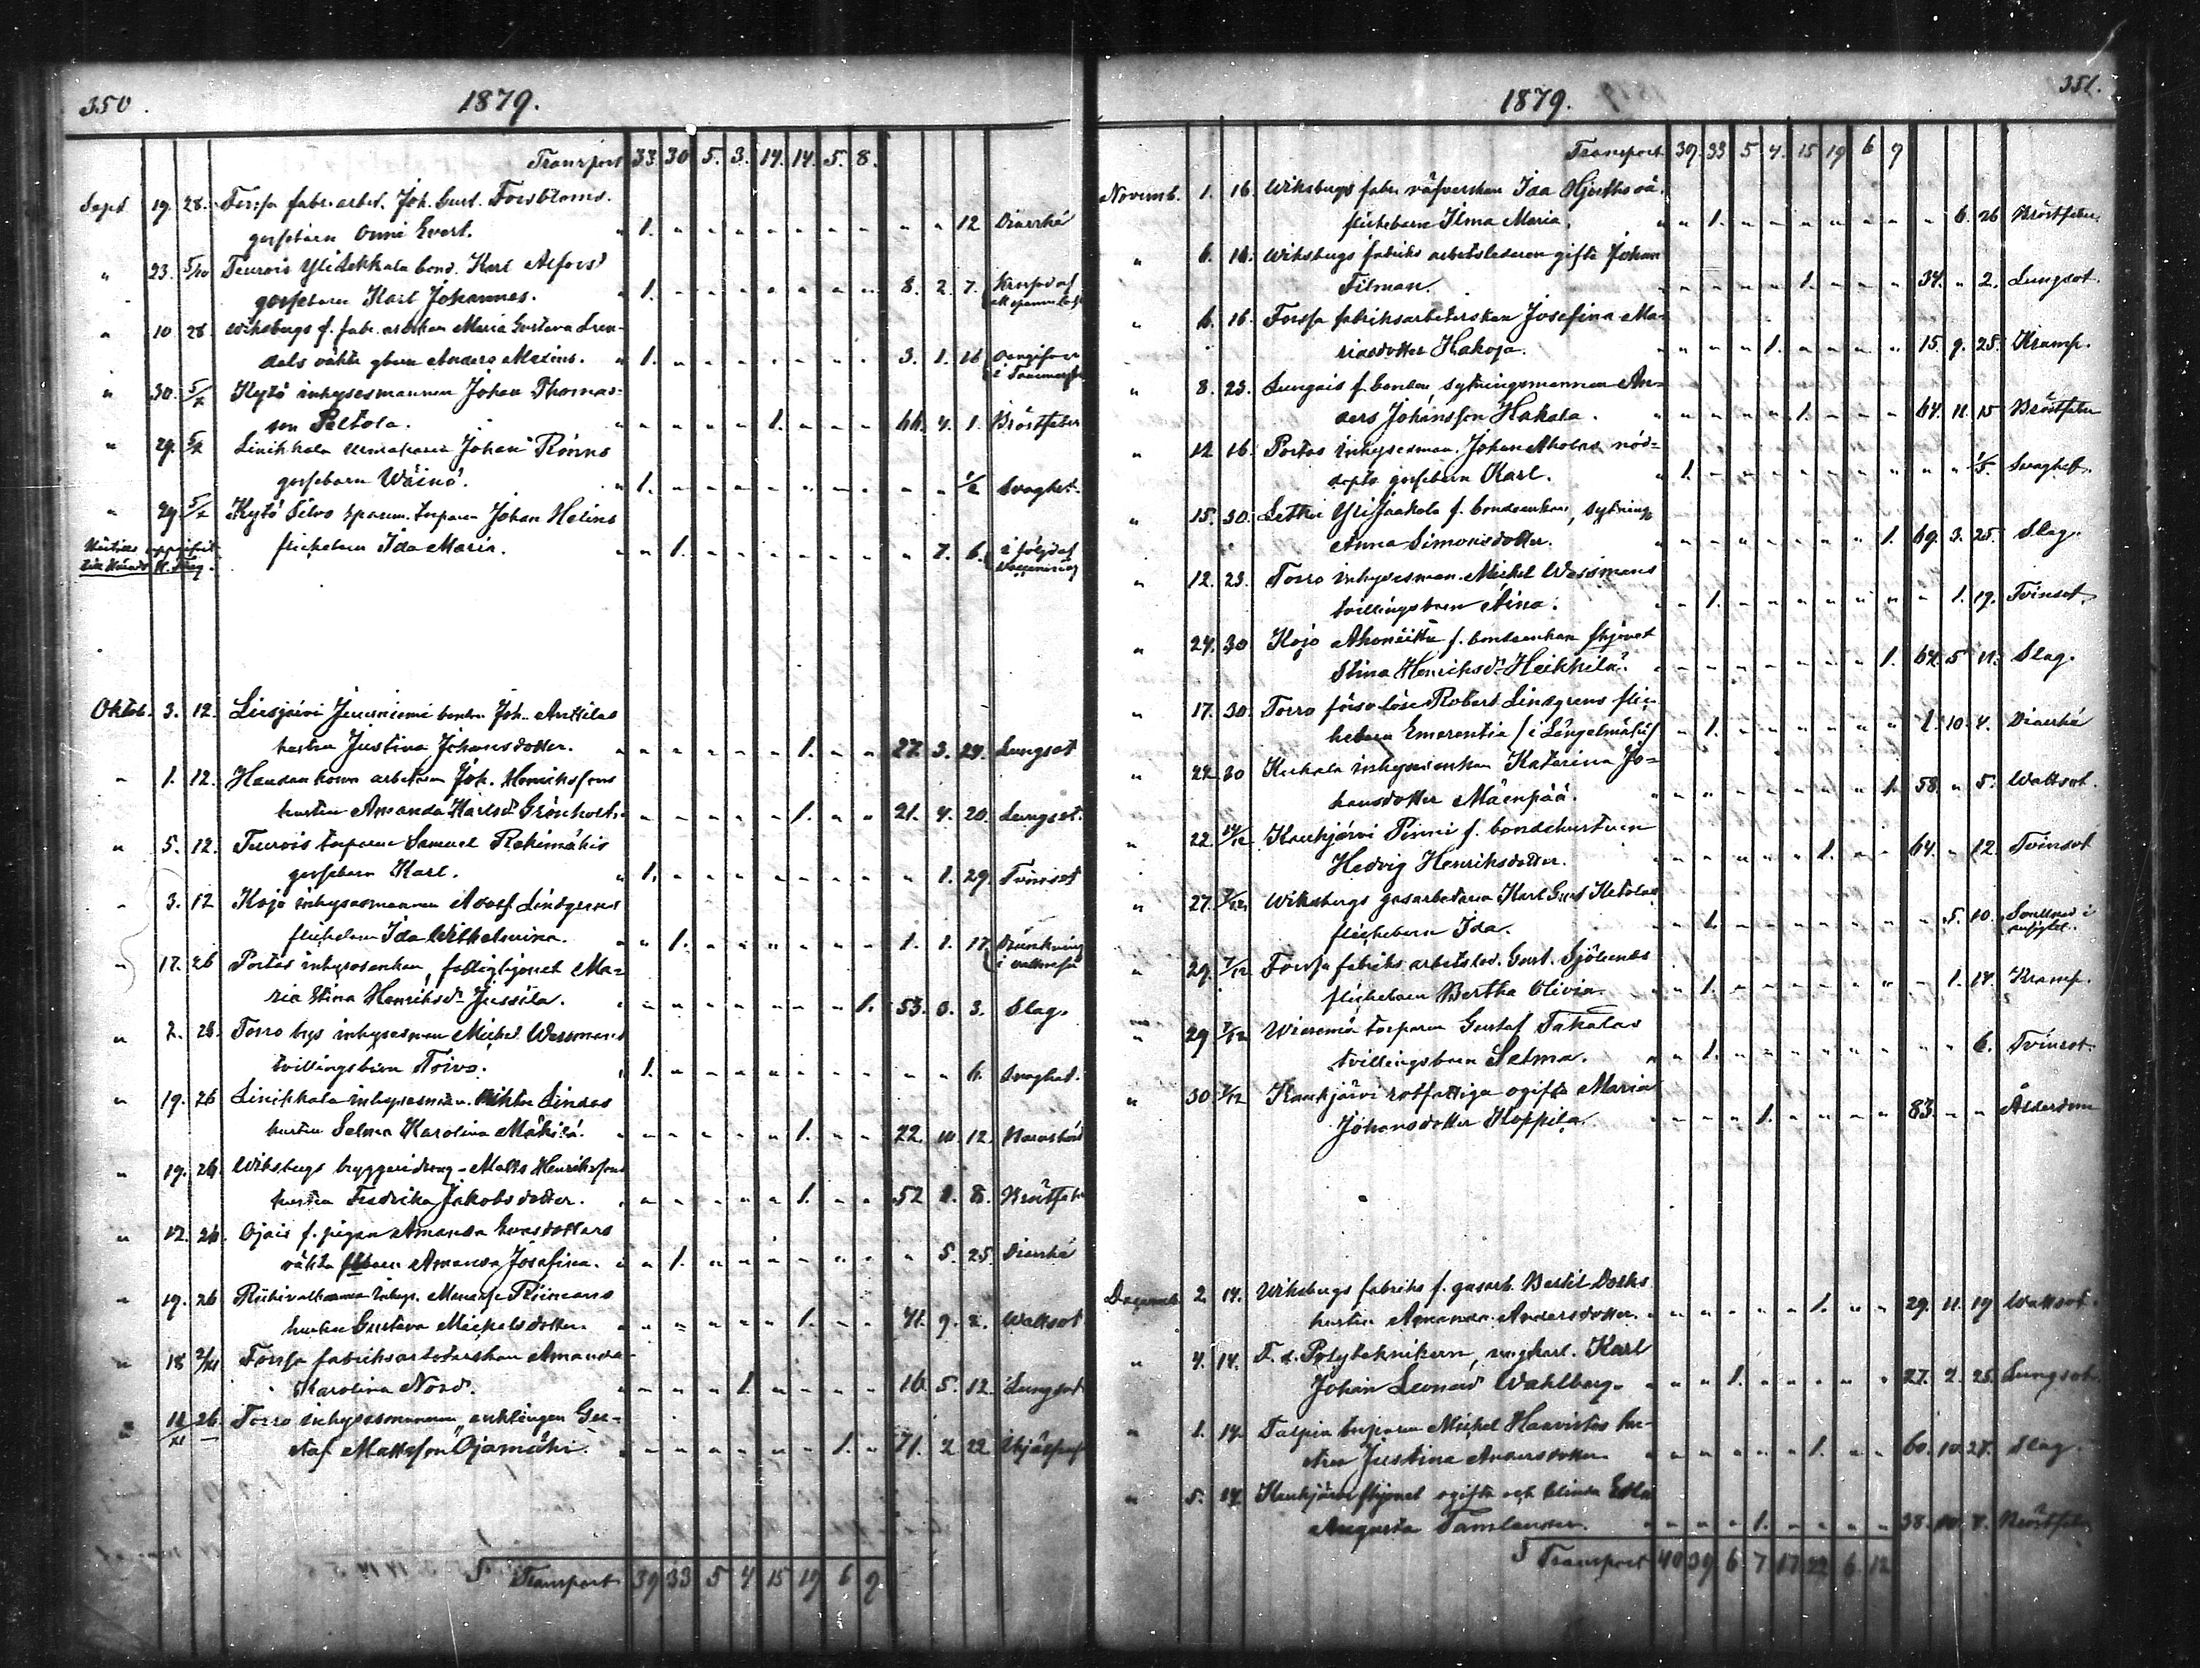 350.
1879.
Transport 33. 30. 5. 3. 14. 14. 5. 8.
Sept 19. 28. Forssa fabr. arbet. Joh. Gust. Forsbloms
gossebarn Onni Evert. " 1. " " " " " " " " " 12 Diarrhé
" 23. 5/10 Teurois Ylitekkala bond. Karl Alfors
gossebarn Karl Johannes. " 1. " " " " " " " 8. 2. 7.
" 10 28. Wiksbergs f. fabr. arbskan Maria Gustava
dals oäkta gbarn Anders " 1. " " " " " " " 3. 1. 16
" 30. 5/x Kytö inhysesmannen Johan Thomas-
son Peltola. " " " " " 1. " " " 66. 4. 1. Bröstfeber
" 29. 5/x Linikkala Johan Rönns
gossebarn Wäinö. " 1. " " " " " " " " " 1/2 Svaghet.
" 29 5/x Kytö torparen Johan Helins
flickebarn Ida Maria. " " 1. " " " " " " " 7. 6. i följd af
Oktob. 3. 12. Liesjärvi bonden Joh. Anttilas
hustru Justina Johansdotter. " " " " " " 1. " " 27. 3. 24. Lungsot
" 1. 12. arbetaren Joh. Henrikssons
hustru Amanda Karlsd. " " " " " " 1. " " 21. 4. 20. Lungsot.
" 5. 12. Teurois torparen Samuel
gossebarn Karl. " 1. " " " " " " " " 1. 29. Tvinsot
" 3. 12 Kojo inhysesmannen Adolf Lindgrens
flickebarn Ida Wilhelmina. " " 1. " " " " " " 1. 1. 17 Drunkning
" 17. 26 Portas inhysesenkan, fattighjonet Ma-
ria Stina Henriksd. Jussila. " " " " " " " " 1. 53. 3. Slag.
" 2. 28. Torro bys inhysesman Mickel Wessmans
tvillingsbarn Toivo. " 1. " " " " " " " " " 6. Svaghet.
" 19. 26 Linikkala inhysesman Viktor Lindos
hustru Selma Karolina Mäkilä. " " " " " " 1. " " 22. 10. 12. Barnsbörd
" 19. 26. Wiksbergs bryggeridreng Matts Henrikssons
hustru Fredrika Jakobsdotter. " " " " " " 1. " " 52 8. Bröstfeber
" 17. 26. Ojais f. pigan Amanda Evasdotters
oäkta barn Amanda Josefina. " " 1. " " " " " " " 5. 25. Diarrhé
" 19. 26 inhys.
hustru Gustava Mickelsdotter. " " " " " " 1. " " 41. 9. 2. Wattsot
" 18 2/XI Forssa fabriksarbeterskan Amanda
Karolina Nord. " " " " 1. " " " " 16. 5. 12. Lungsot
" 18/XI 26. Torro inhysesmannen, enklingen Gu-
staf Mattsson Ojamäki. " " " " " " " 1. " 71. 2 22
Transport 39 33 5 4 15 19 6 9
351.
1879.
Transport 39. 33 5 4. 15 19 6 9
Novemb. 1. 16. Wiksbergs fabr. väfverskan Ida oä.
flickebarn Ilma Maria. " " 1. " " " " " " " 6. 26 Bröstfeber
" 6. 16. Wiksbergs fabriks arbetsledaren gifte Johan
Filman. " " " " " 1. " " " 34. " 2. Lungsot.
" 6. 16. Forssa fabriksarbeterskan Josefina Ma-
riasdotter Hakoja. " " " " 1. " " " " 15. 9. 25. Kramp.
" 8. 23. f. bonden sytningsmannen An-
ders Johansson Hakala. " " " " " 1. " " " 64. 11. 15 Bröstfeber
" 12 16. Portas inhysesman. Johan Aholas nöd-
döpta gossebarn Karl. " 1. " " " " " " " " " 1/5 Svaghet.
" 15. 30. Yli Jaakola f. bondeenkan, sytning.
Anna Simonsdotter. " " " " " " " " 1. 69. 3. 25. Slag.
" 12. 23. Torro inhysesman. Mickel Wessmans
tvillingsbarn Aina. " " 1. " " " " " " " 1. 19. Tvinsot.
" 24. 30 Kojo f. bondeenkan
Stina Henriksd. Heikkilä. " " " " " " " " 1. 64. 5 11. Slag.
" 17. 30. Torro försv. löse Robert Lindgrens flic-
kebarn Emerentia (i Längelmäki) " " 1. " " " " " " 1. 10. 4. Diarrhé
" 24 30 inhysesenkan Katarina Jo-
hansdotter Mäenpää. " " " " " " " " 1. 58. " 5. Wattsot.
" 22. 14/12 Kaukjärvi Pinni f. bondehustrun
Hedvig Henriksdotter. " " " " " " 1. " " 64. " 12. Tvinsot
" 27. 7/12 Wiksbergs gasarbetaren Karl Gust Ketolas
flickebarn Ida. " " 1. " " " " " " " 5. 10.
" 29. 7/12 Forssa fabriks arbetsled. Gust. Sjölunds
flickebarn Bertha Olivia. " " 1. " " " " " " " 1. 14. Kramp.
" 29 7/12 Wieremä torparen Gustaf Takalas
tvillingsbarn Selma. " " 1. " " " " " " " " 6. Tvinsot.
" 30 7/12 Kaukjärvi rotfattiga ogifta Maria
Johansdotter Hoppila. " " " " 1. " " " " 83. " " Ålderdom
Decemb. 2. 14. Wiksbergs fabriks f. gasarb. Bertil
hustru Amanda Andersdotter. " " " " " " 1. " " 29. 11. 19 Wattsot.
" 4. 14. F. d. Polyteknikern, ungkarl. Karl
Johan Leonard Wahlberg. " " " 1. " " " " " 27. 2. 25. Lungsot.
" 1. 14. Talpia torparen Mickel Haavistos hu-
stru Justina Andersdotter " " " " " " 1. " " 60. 10. 27. Slag.
" 5. 14. Kaukjärvi ogifta och blinda Edla
Augusta Tamlander. " " " " 1. " " " " 38. 10. 8. Bröstfeber
Transport 40 39 6 7 17 22 6 12